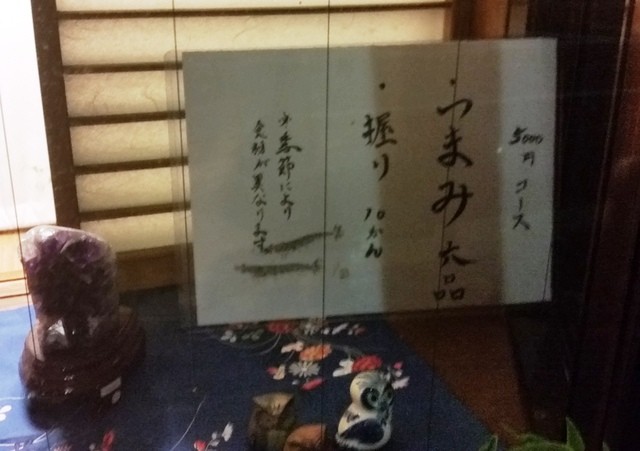 5000円 コース
・つまみ 六品
・握り 10かん
※季節により
金額が異なります